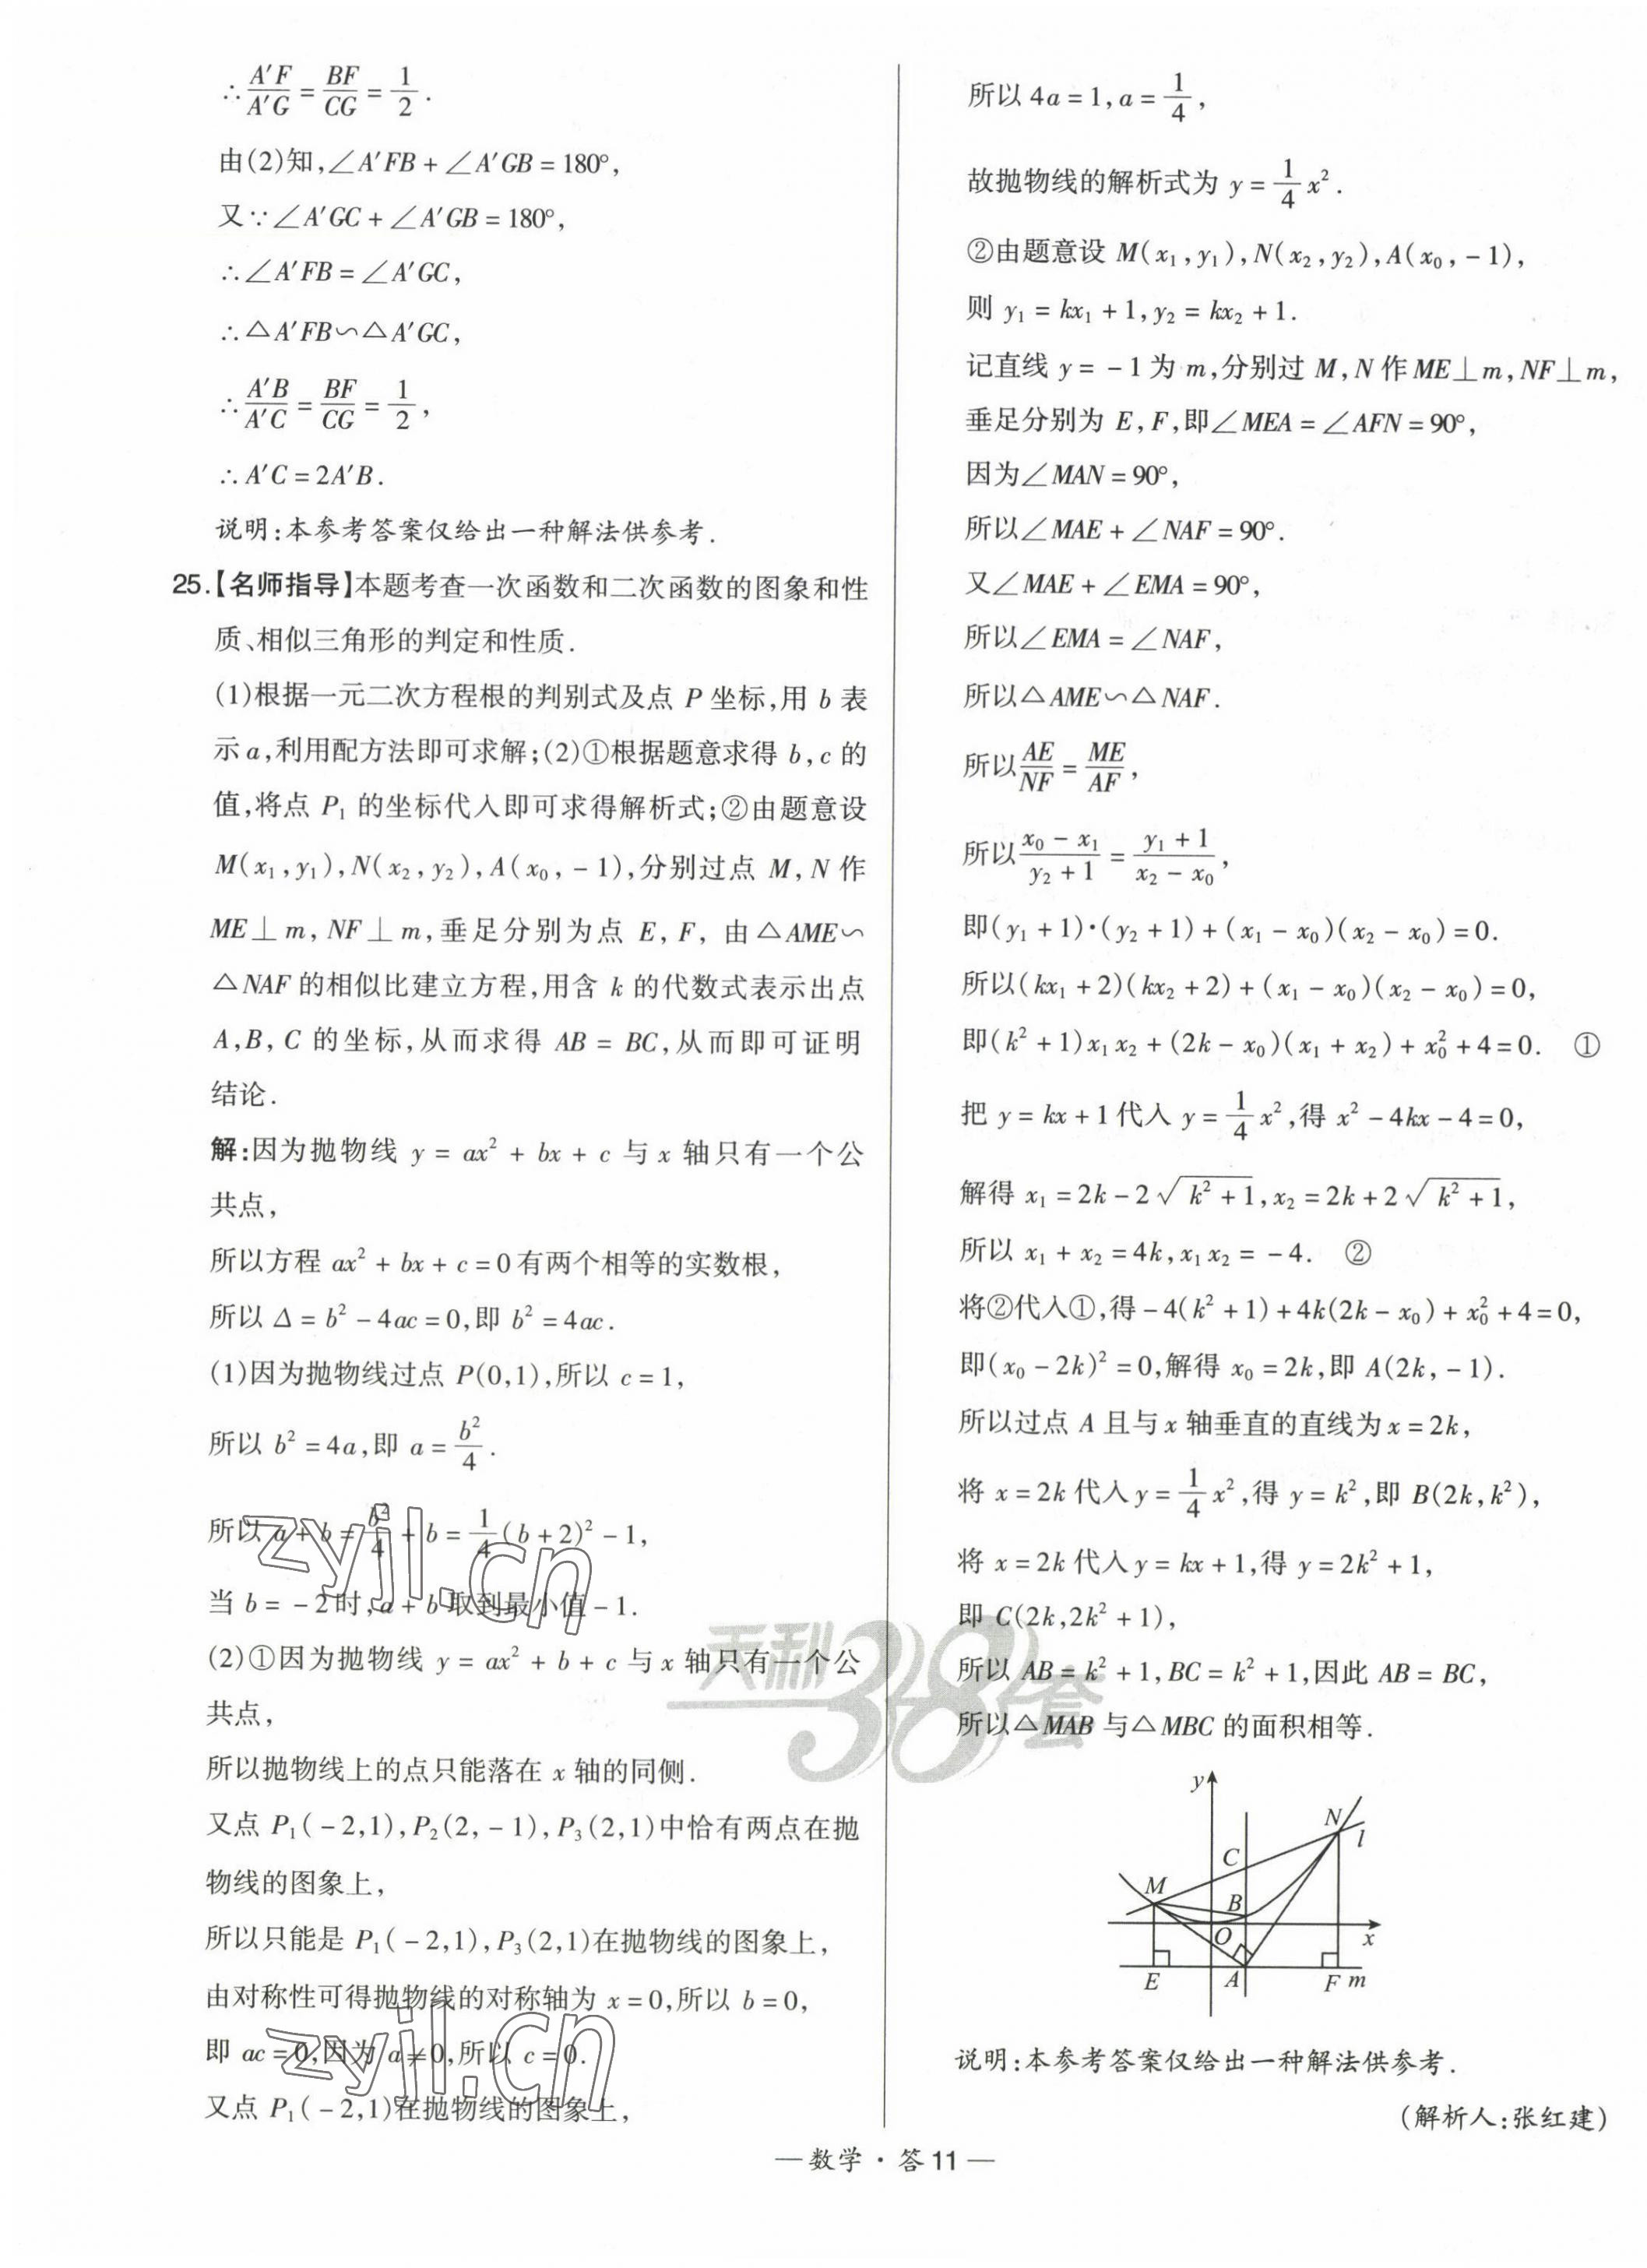 ∴A′F/A′G=BF/CG=1/2.
由(2)知,∠A′FB+∠A′GB=180°,
又∵∠A′GC+∠A′GB=180°,
∴∠A′FB=∠A′GC,
∴△A′FB∽△A′GC,
∴A′B/A′C=BF/CG=1/2,
∴A′C=2A′B.
说明:本参考答案仅给出一种解法供参考.
25.【名师指导】本题考查一次函数和二次函数的图象和性
质、相似三角形的判定和性质.
(1)根据一元二次方程根的判别式及点 P 坐标,用 b 表
示a,利用配方法即可求解;(2)①根据题意求得 b,c 的
值,将点 P₁ 的坐标代入即可求得解析式;②由题意设
M(x₁,y₁),N(x₂,y₂),A(x₀,-1),分别过点 M,N 作
ME⊥m,NF⊥m,垂足分别为点 E,F,由△AME∽
△NAF 的相似比建立方程,用含 k 的代数式表示出点
A,B,C 的坐标,从而求得 AB=BC,从而即可证明
结论.
解:因为抛物线 y=ax²+bx+c 与 x 轴只有一个公
共点,
所以方程 ax²+bx+c=0有两个相等的实数根,
所以 Δ=b²-4ac=0,即 b²=4ac.
(1)因为抛物线过点 P(0,1),所以 c=1,
所以 b²=4a,即 a=b²/4.
所以 a+b=b²/4+b=1/4(b+2)²-1,
当 b=-2时,a+b取到最小值-1.
(2)①因为抛物线 y=ax²+b+c 与 x 轴只有一个公
共点,
所以抛物线上的点只能落在 x 轴的同侧.
又点 P₁(-2,1),P₂(2,-1),P₃(2,1)中恰有两点在抛
物线的图象上,
所以只能是 P₁(-2,1),P₃(2,1)在抛物线的图象上,
由对称性可得抛物线的对称轴为 x=0,所以 b=0,
即 ac=0,因为 a≠0,所以 c=0.
又点 P₁(-2,1)在抛物线的图象上,
所以 4a=1,a=1/4,
故抛物线的解析式为 y=1/4x².
②由题意设 M(x₁,y₁),N(x₂,y₂),A(x₀,-1),
则 y₁=kx₁+1,y₂=kx₂+1.
记直线 y=-1为 m,分别过 M,N 作ME⊥m,NF⊥m,
垂足分别为 E,F,即∠MEA=∠AFN=90°,
因为∠MAN=90°,
所以∠MAE+∠NAF=90°.
又∠MAE+∠EMA=90°,
所以∠EMA=∠NAF,
所以△AME∽△NAF.
所以AE/NF=ME/AF,
所以(x₀-x₁)/(y₂+1)=(y₁+1)/(x₂-x₀),
即(y₁+1)·(y₂+1)+(x₁-x₀)(x₂-x₀)=0.
所以(kx₁+2)(kx₂+2)+(x₁-x₀)(x₂-x₀)=0,
即(k²+1)x₁x₂+(2k-x₀)(x₁+x₂)+x₀²+4=0. ①
把 y=kx+1代入 y=1/4x²,得 x²-4kx-4=0,
解得 x₁=2k-2√(k²+1),x₂=2k+2√(k²+1),
所以 x₁+x₂=4k,x₁x₂=-4. ②
将②代入①,得-4(k²+1)+4k(2k-x₀)+x₀²+4=0,
即(x₀-2k)²=0,解得 x₀=2k,即 A(2k,-1).
所以过点 A 且与x 轴垂直的直线为x=2k,
将 x=2k代入y=1/4x²,得 y=k²,即 B(2k,k²),
将 x=2k代入y=kx+1,得 y=2k²+1,
即 C(2k,2k²+1),
所以 AB=k²+1,BC=k²+1,因此 AB=BC,
所以△MAB 与△MBC 的面积相等.
y
N
l
C
M
B
O
x
E
A
F
m
说明:本参考答案仅给出一种解法供参考.
(解析人:张红建)
— 数学·答11 —
zyjl.cn
天利38套
zyjl.cn